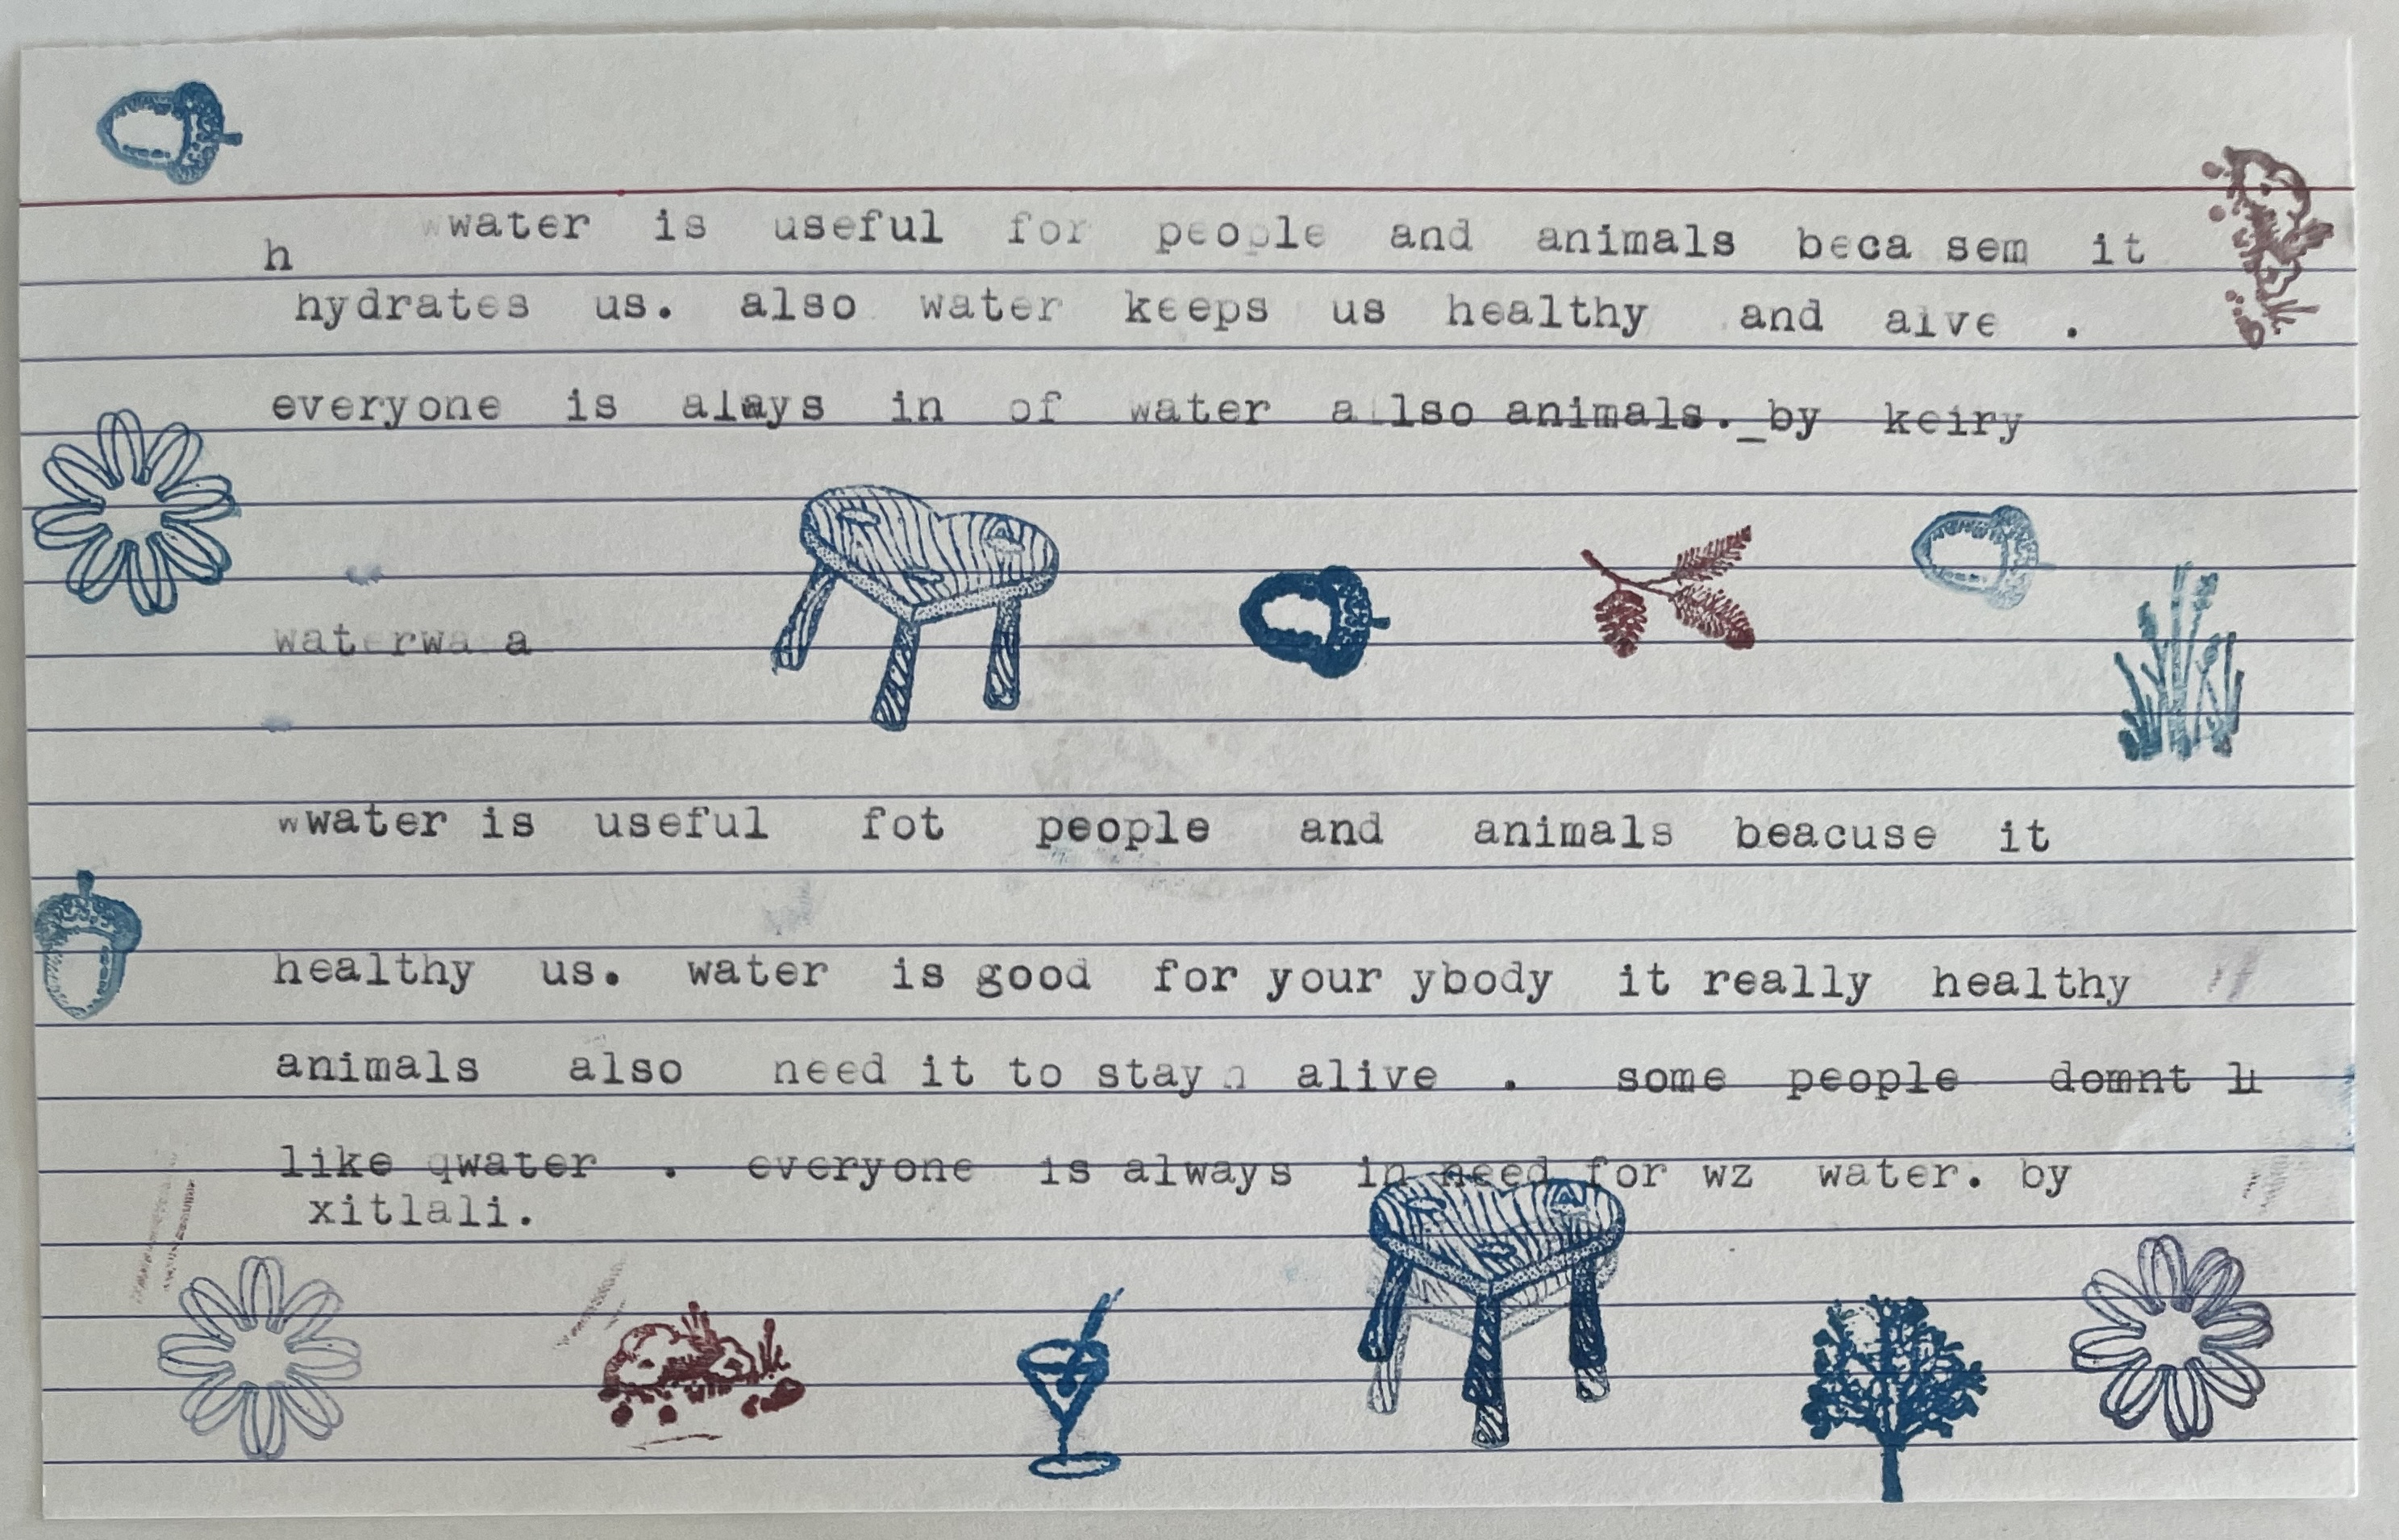 wwater is useful for people and animals beca sem it
h
hydrates us. also water keeps us healthy and aive .
everyone is always in of water a lso animals._by keiry
waterwa a
wwater is useful fot people and animals beacuse it
healthy us. water is good for your ybody it really healthy
animals also need it to stay n alive . some people domnt li
like qwater . everyone is always in need for wz water. by
xitlali.